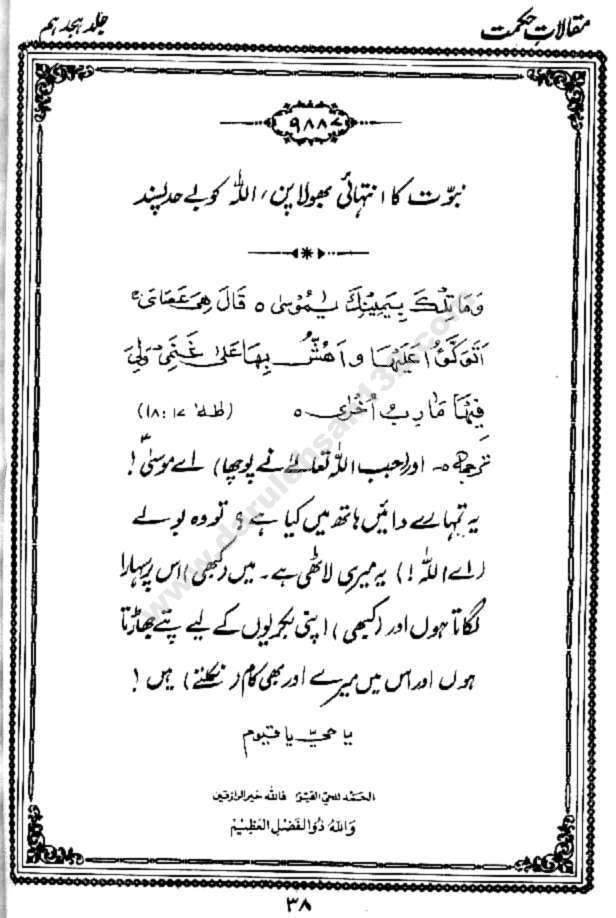 مقالاتِ حکمت
جلد ہجدہم
۹۸۸۷
نبوّت کا انتہائی بھولاپن، اللہ کو بے حد پسند
وَمَا تِلْكَ بِيَمِيْنِكَ يٰمُوْسٰى ○ قَالَ هِىَ عَصَاىَ ۚ
اَتَوَكَّؤُا عَلَيْهَا وَاَهُشُّ بِهَا عَلٰى غَنَمِىْ وَلِىَ
فِيْهَا مَاٰرِبُ اُخْرٰى ○ (طٰهٰ ۱۷ :۱۸)
ترجمہ ○- اور (جب اللہ تعالےٰ نے پوچھا) اے موسٰیؑ !
یہ تمہارے دائیں ہاتھ میں کیا ہے ؟ تو وہ بولے
(اے اللہ !) یہ میری لاٹھی ہے۔ میں (کبھی) اس پر سہارا
لگاتا ہوں اور (کبھی) اپنی بکریوں کے لیے پتے جھاڑتا
ہوں اور اس میں میرے اور بھی کام (نکلتے) ہیں !
یا حیّ یا قیوم
الحَمْد للحیّ القیّوم فاللّٰه خیر الرازقین
وَاللّٰهُ ذُوالفَضْلِ العَظِیْمِ
۳۸